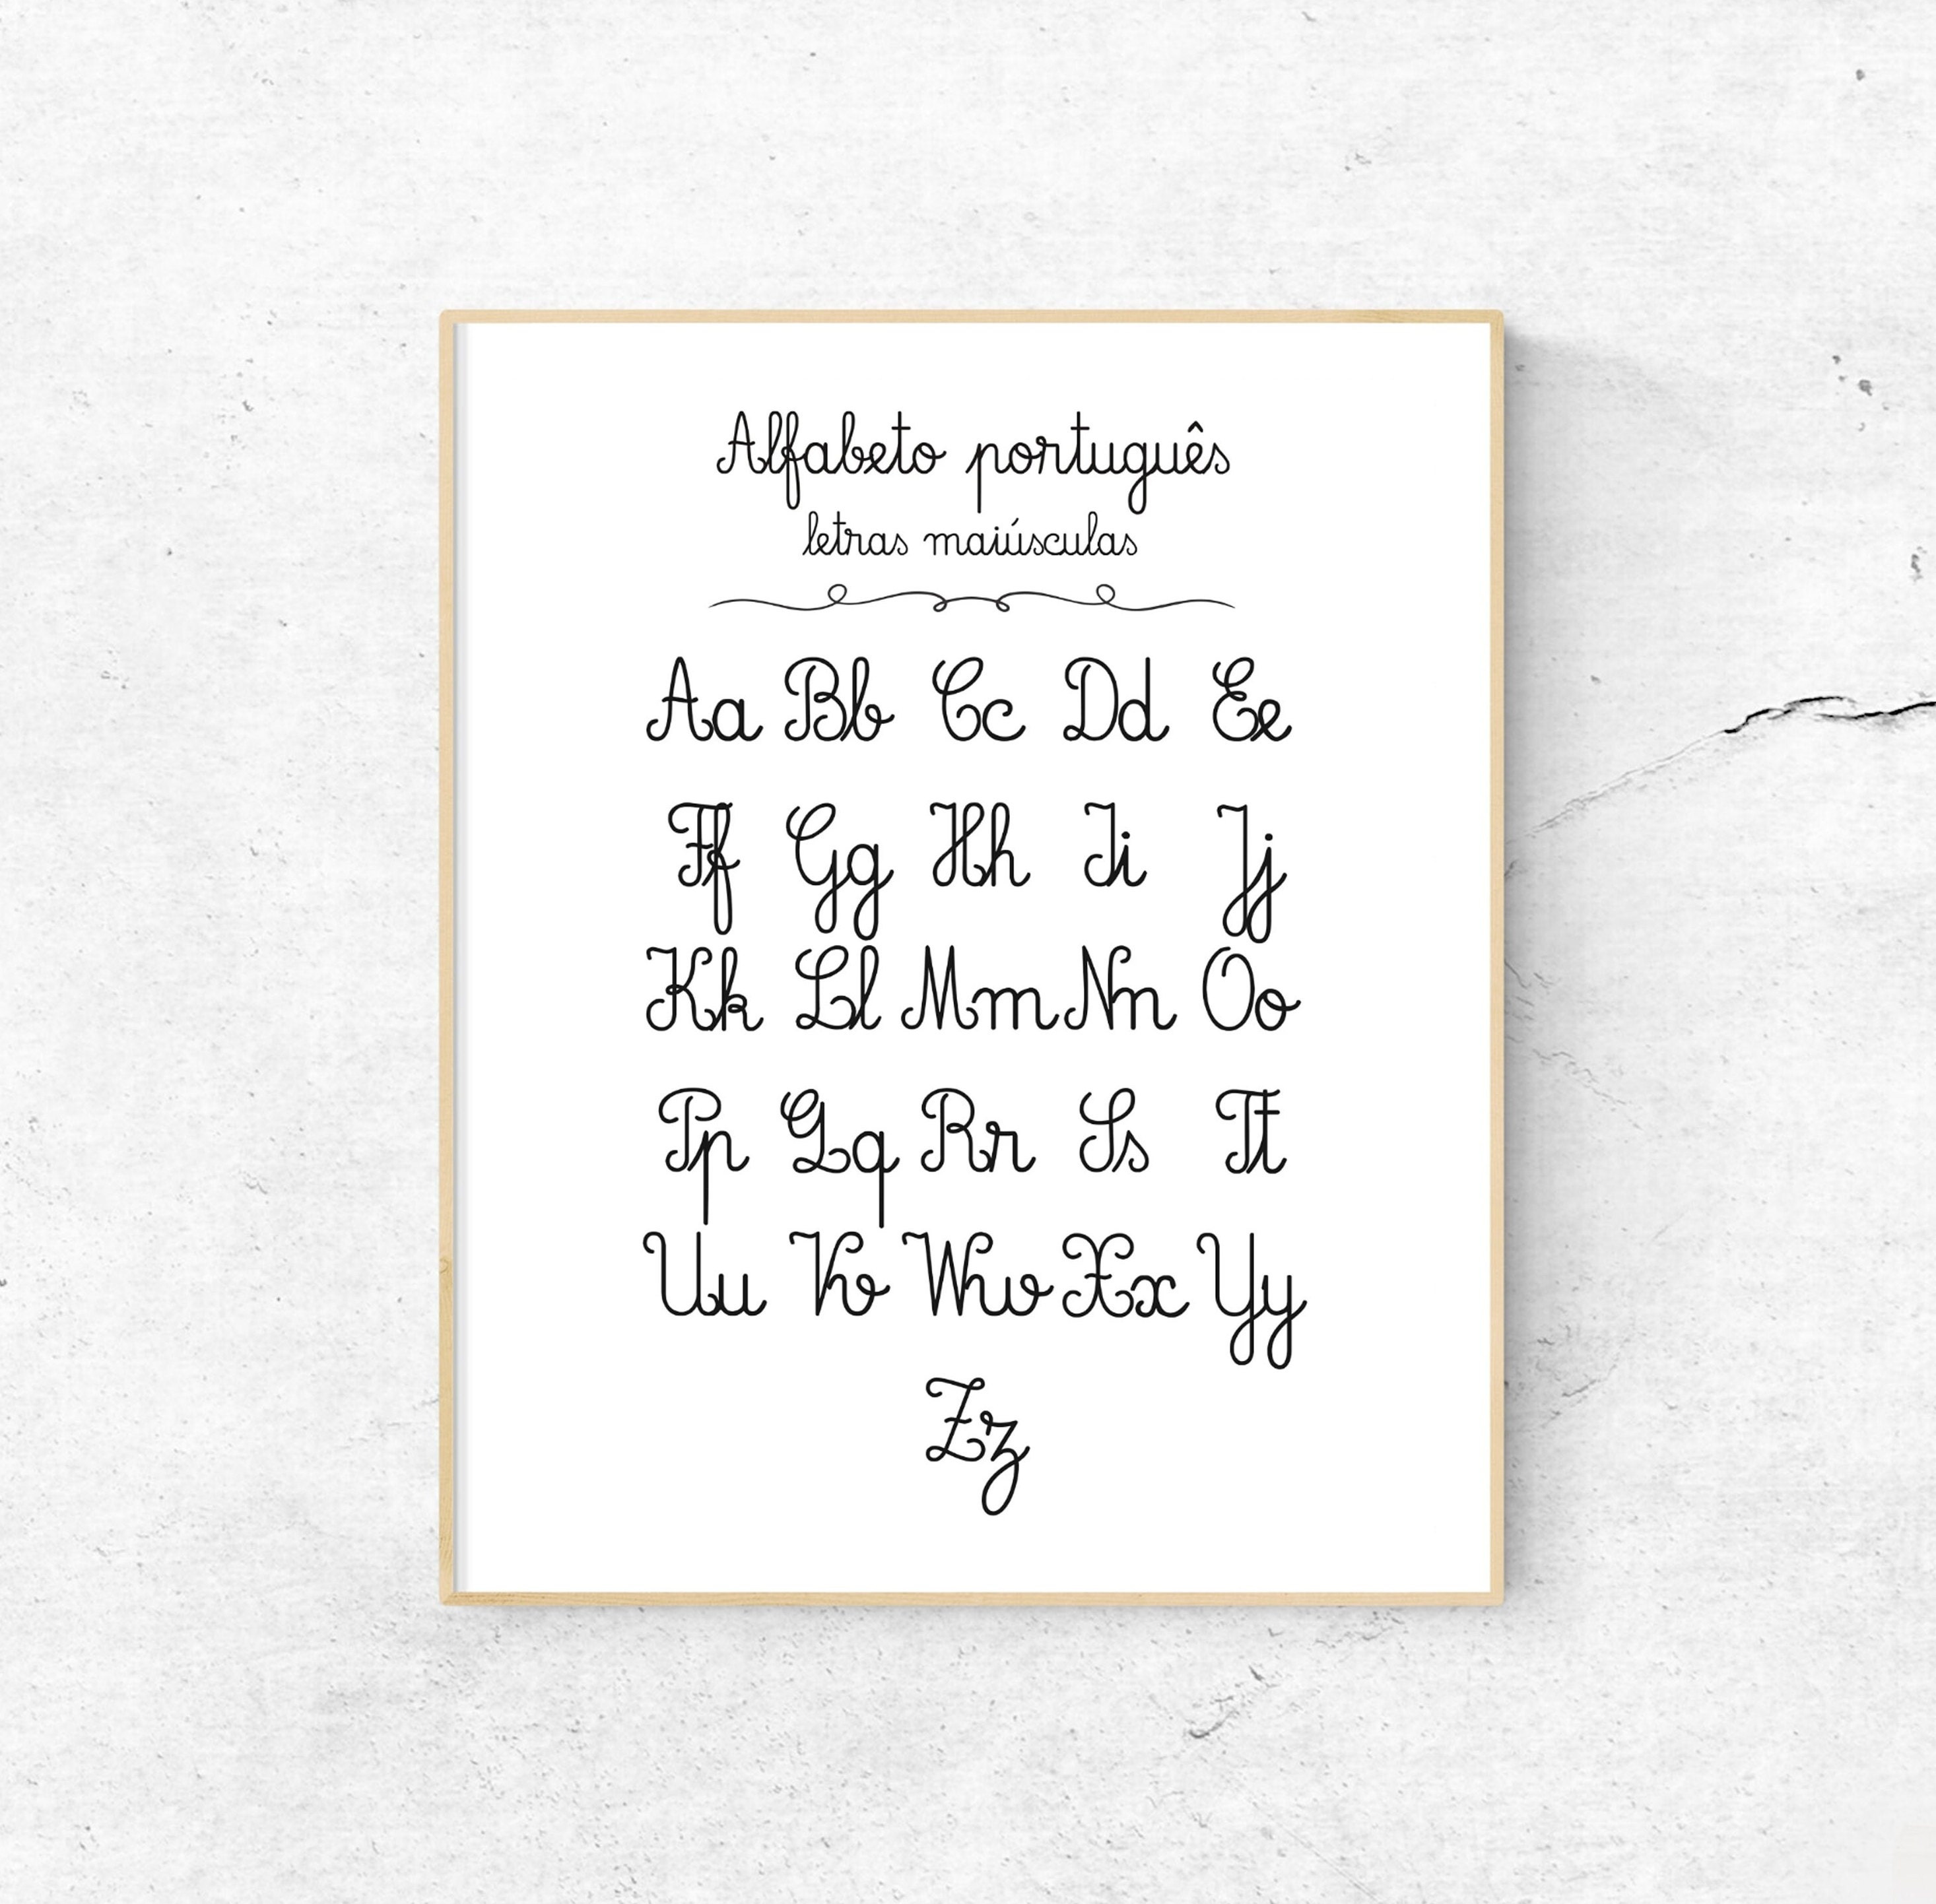 Alfabeto português
letras maiúsculas
Aa Bb Cc Dd Ee
Ff Gg Hh Ii Jj
Kk Ll Mm Nn Oo
Pp Qq Rr Ss Tt
Uu Vv Ww Xx Yy
Zz